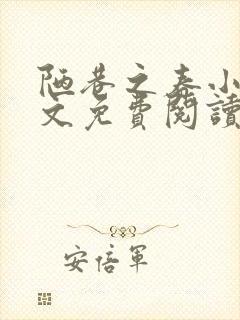 陋巷之春小
文免費閱讀
安倍軍